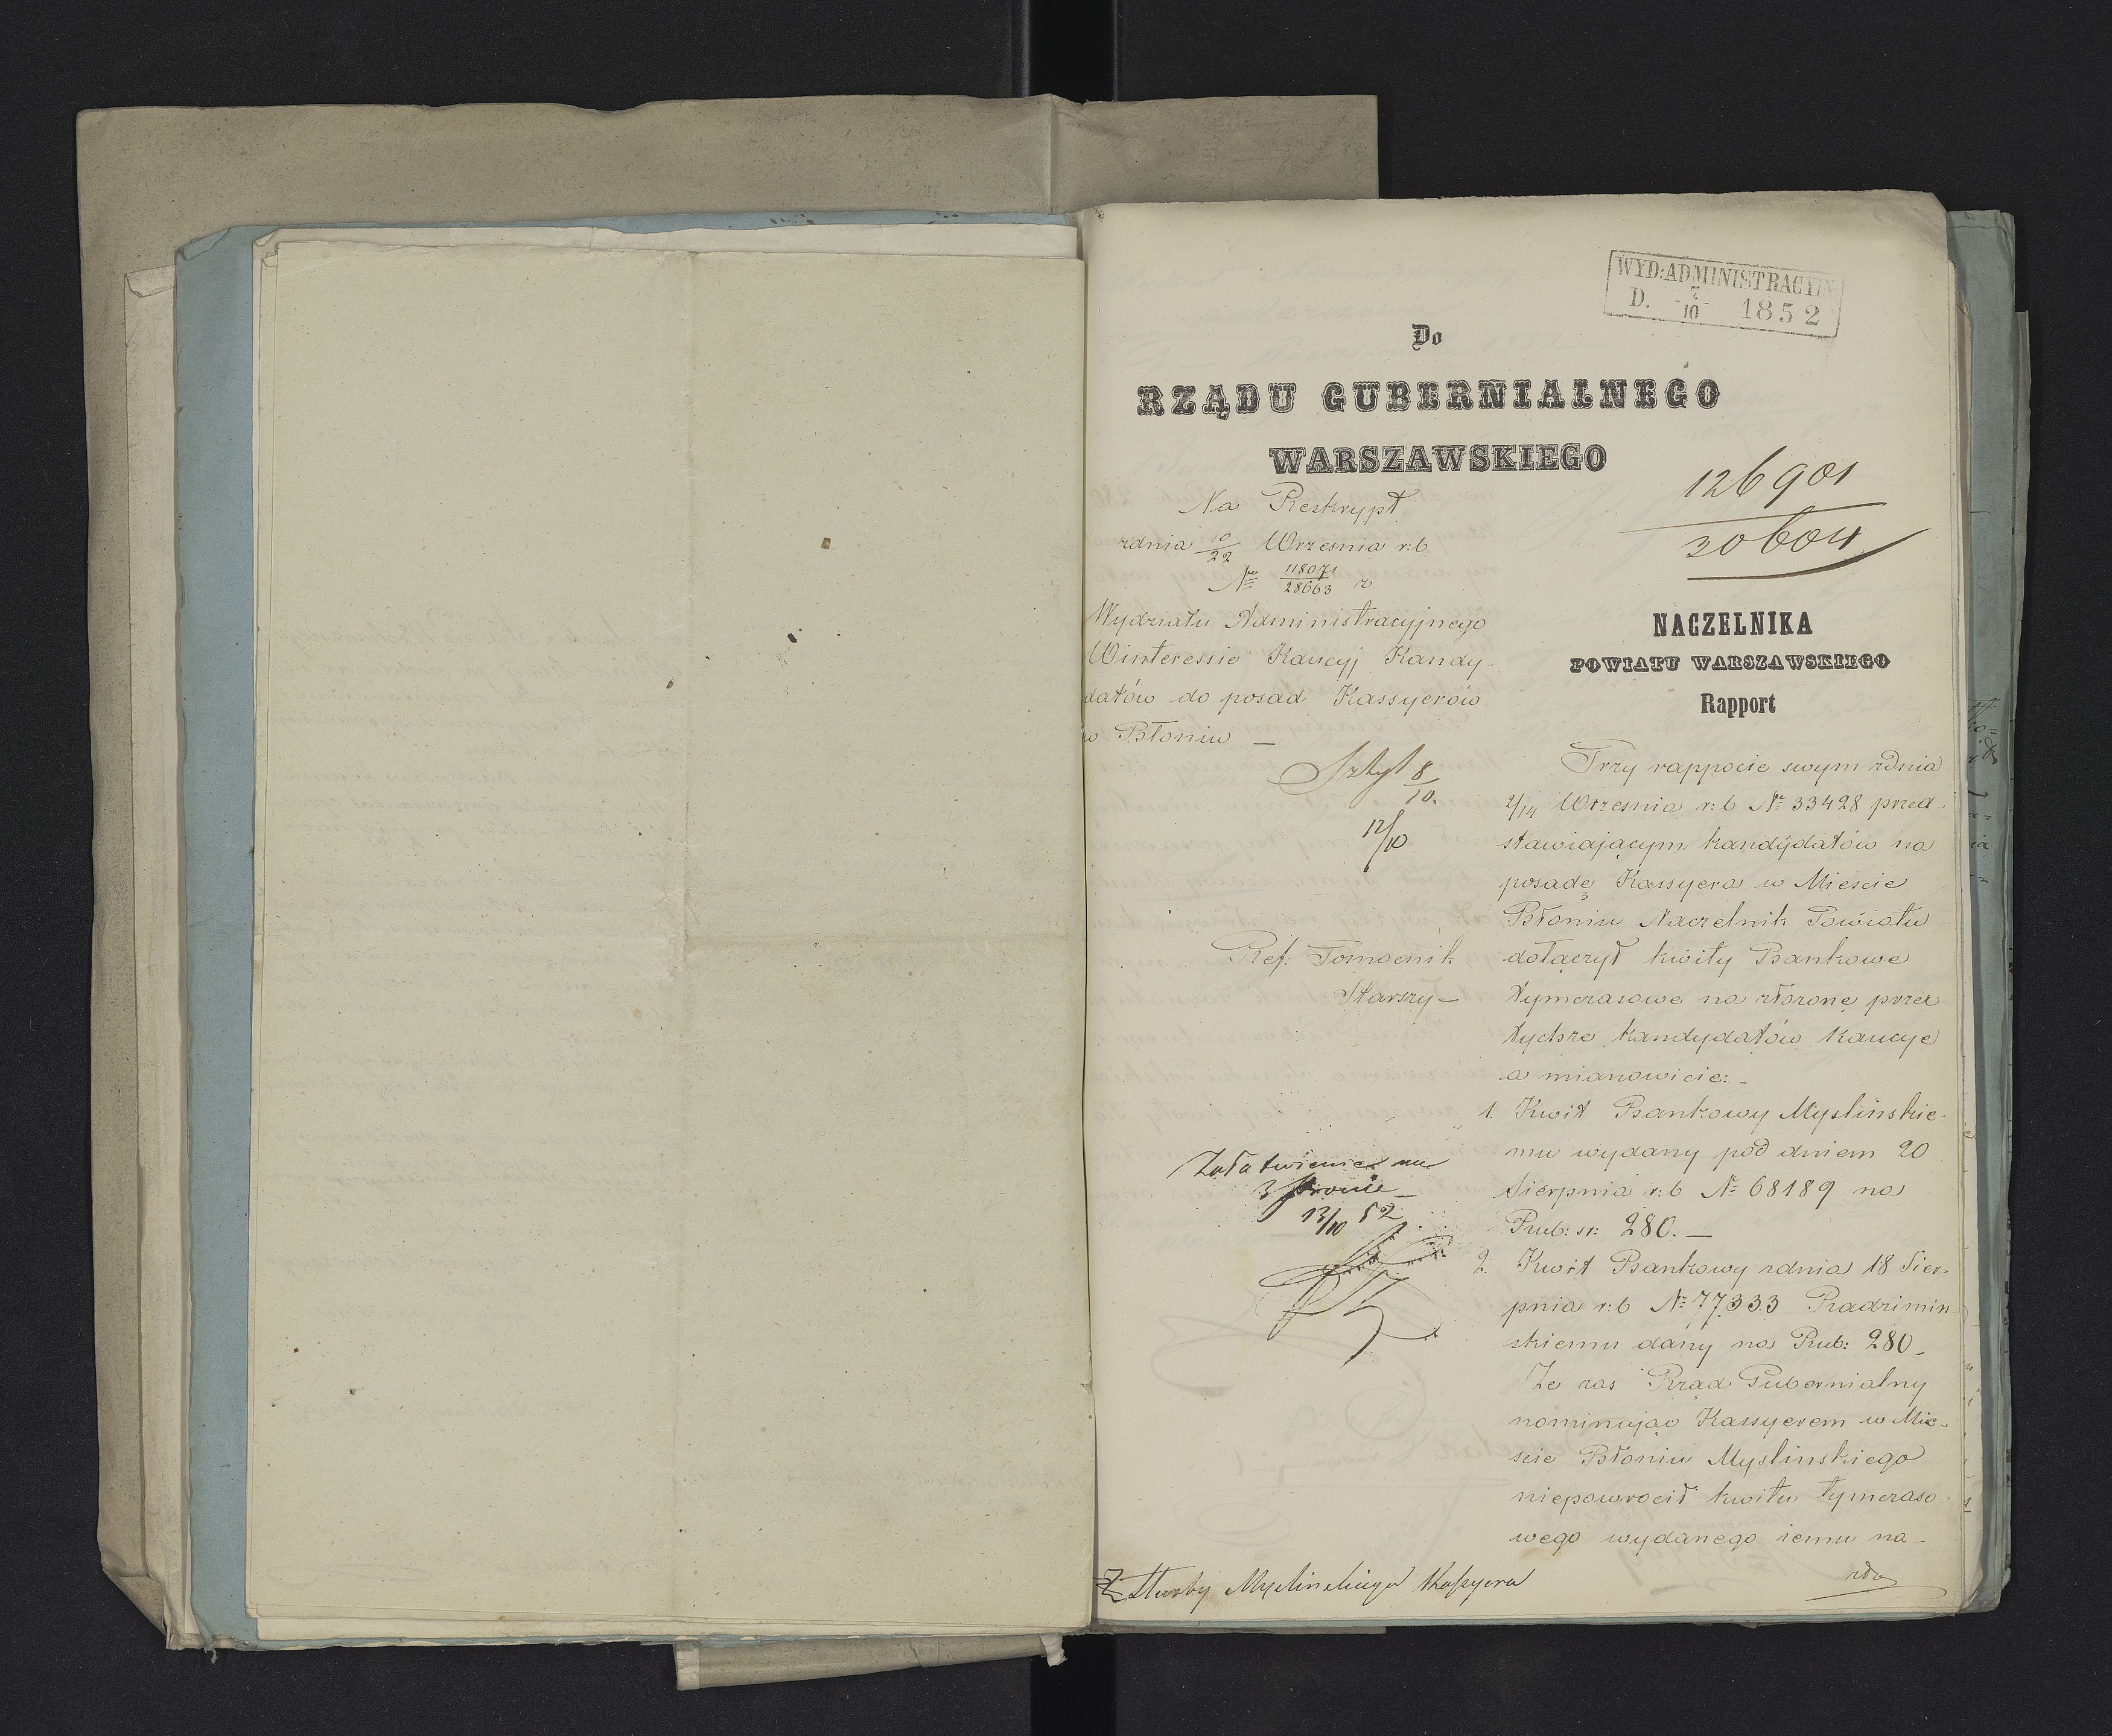 WYD: ADMINISTRACYJN
D. 7/10 1852
Do
RZĄDU GUBERNIALNEGO
WARSZAWSKIEGO
126901
30604
Na Reskrypt
zdnia 10/22 Września r: b
No 118071/28663 z
Wydziału Administracyjnego
Winteressie Kaucyj Kandy-
datów do posad Kassyerów
w Błoniu –
8/10.
12/10
Ref. Pomocnik
Starszy –
Załatwienie na
3 stronie –
13/10 52
NACZELNIKA
POWIATU WARSZAWSKIEGO
Rapport
Przy rappocie swym zdnia
2/14 Września r: b No 33428 przed
stawiającym kandydatów na
posadę Kassyera w Mieście
Błoniu Naczelnik Powiatu
dołączył kwity Bankowe
tymczasowe na złożone przez
tychże kandydatów kaucye
a mianowicie: –
1. Kwit Bankowy Myślińskie-
mu wydany pod dniem 20
Sierpnia r: b No 68189 na
Rub: sr: 280. –
2. Kwit Bankowy zdnia 18 Sier-
pnia r: b No 77333 Radzimin
skiemu dany na Rub: 280 –
Że zaś Rząd Gubernialny
nominując Kassyerem w Mie-
ście Błoniu Myslinskiego
niepowrócił kwitu tymczaso
wego wydanego iemu na –
Z Służby Myslinskiego Kassyera